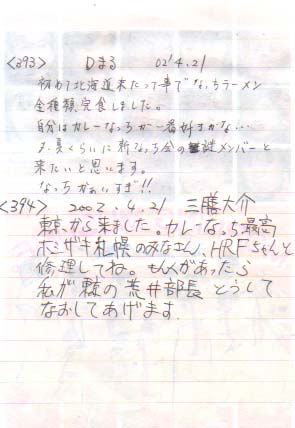 <393> Dまる 02'4.21
初めて北海道来たって事でなっちラーメン
全種類完食しました。
自分はカレーなっちが一番好きかな…
夕 見くらいに新なち会の謎メンバーと
来たいと思います。
なっちかぁいすぎ!!
<394> 2002.4.21 三膳大介
東京から来ました。カレーなっち最高
ホシザキ札幌のみなさん、HRFちゃんと
修理してね。もんくがあったら
私が東京の荒井部長 とうして
なおしてあげます.